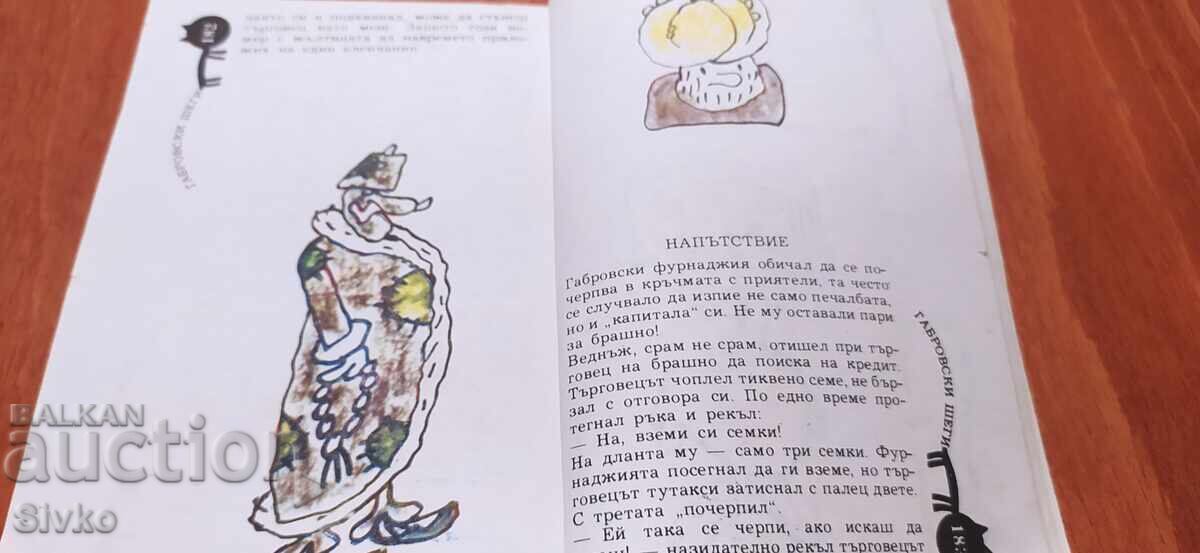 182
ците си и подквасил, може да станеш
търговец като мене. Защото това по-
ГАБРОВСКИ ШЕГИ
НАПЪТСТВИЕ
Габровски фурнаджия обичал да се по-
черпва в кръчмата с приятели, та често
се случвало да изпие не само печалбата,
но и „капитала“ си. Не му оставали пари
за брашно!
Веднъж, срам не срам, отишел при тър-
говец на брашно да поиска на кредит.
Търговецът чоплел тиквено семе, не бър-
зал с отговора си. По едно време про-
тегнал ръка и рекъл:
— На, вземи си семки!
На дланта му — само три семки. Фур-
наджията посегнал да ги вземе, но тър-
говецът тутакси затиснал с палец двете.
С третата „почерпил“.
— Ей така се черпи, ако искаш да
— назидателно рекъл търговецът
ГАБРОВСКИ ШЕГИ
BALKAN
auction
Sivko